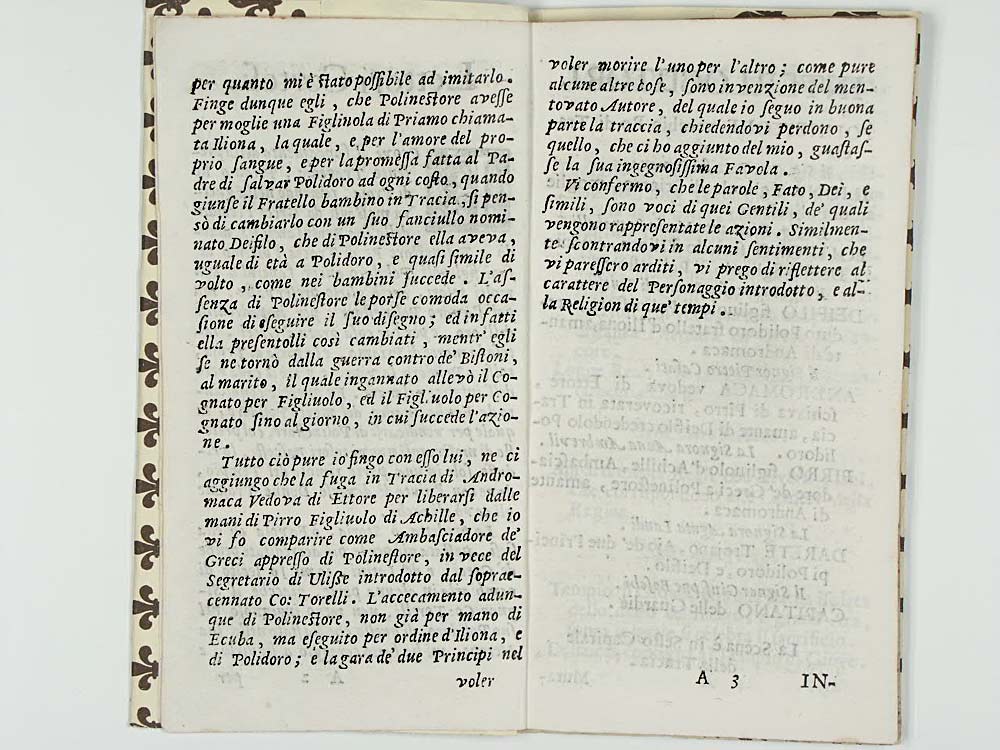 per quanto mi è ſtato poſſibile ad imitarlo.
Finge dunque egli, che Polineſtore aveſſe
per moglie una Figliuola di Priamo chiama-
ta Iliona, la quale, e per l'amore del pro-
prio sangue, e per la promeſſa fatta al Pa-
dre di ſalvar Polidoro ad ogni coſto, quando
giunſe il Fratello bambino in Tracia, ſi pen-
sò di cambiarlo con un ſuo fanciullo nomi-
nato Deifilo, che di Polineſtore ella aveva,
uguale di età a Polidoro, e quaſi ſimile di
volto, come nei bambini ſuccede. L'aſ-
ſenza di Polineſtore le porſe comoda occa-
ſione di eſeguire il ſuo diſegno; ed in fatti
ella preſentolli così cambiati, mentr' egli
ſe ne tornò dalla guerra contro de' Biſtoni,
al marito, il quale ingannato allevò il Co-
gnato per Figliuolo, ed il Figliuolo per Co-
gnato ſino al giorno, in cui ſuccede l'azio-
ne.
Tutto ciò pure io fingo con eſſo lui, ne ci
aggiungo che la fuga in Tracia di Andro-
maca Vedova di Ettore per liberarſi dalle
mani di Pirro Figliuolo di Achille, che io
vi fo comparire come Ambaſciadore de'
Greci appreſſo di Polineſtore, in vece del
Segretario di Uliſſe introdotto dal ſoprac-
cennato Co: Torelli. L'accecamento adun-
que di Polineſtore, non già per mano di
Ecuba, ma eſeguito per ordine d'Iliona, e
di Polidoro; e la gara de' due Principi nel
voler
voler morire l'uno per l'altro; come pure
alcune altre coſe, ſono invenzione del men-
tovato Autore, del quale io ſeguo in buona
parte la traccia, chiedendovi perdono, ſe
quello, che ci ho aggiunto del mio, guaſtaſ-
ſe la ſua ingegnoſiſſima Favola.
Vi confermo, che le parole, Fato, Dei, e
ſimili, ſono voci di quei Gentili, de' quali
vengono rappreſentate le azioni. Similmen-
te ſcontrandovi in alcuni ſentimenti, che
vi pareſſero arditi, vi prego di riflettere al
carattere del Perſonaggio introdotto, e al-
la Religion di que' tempi.
A 3 IN-